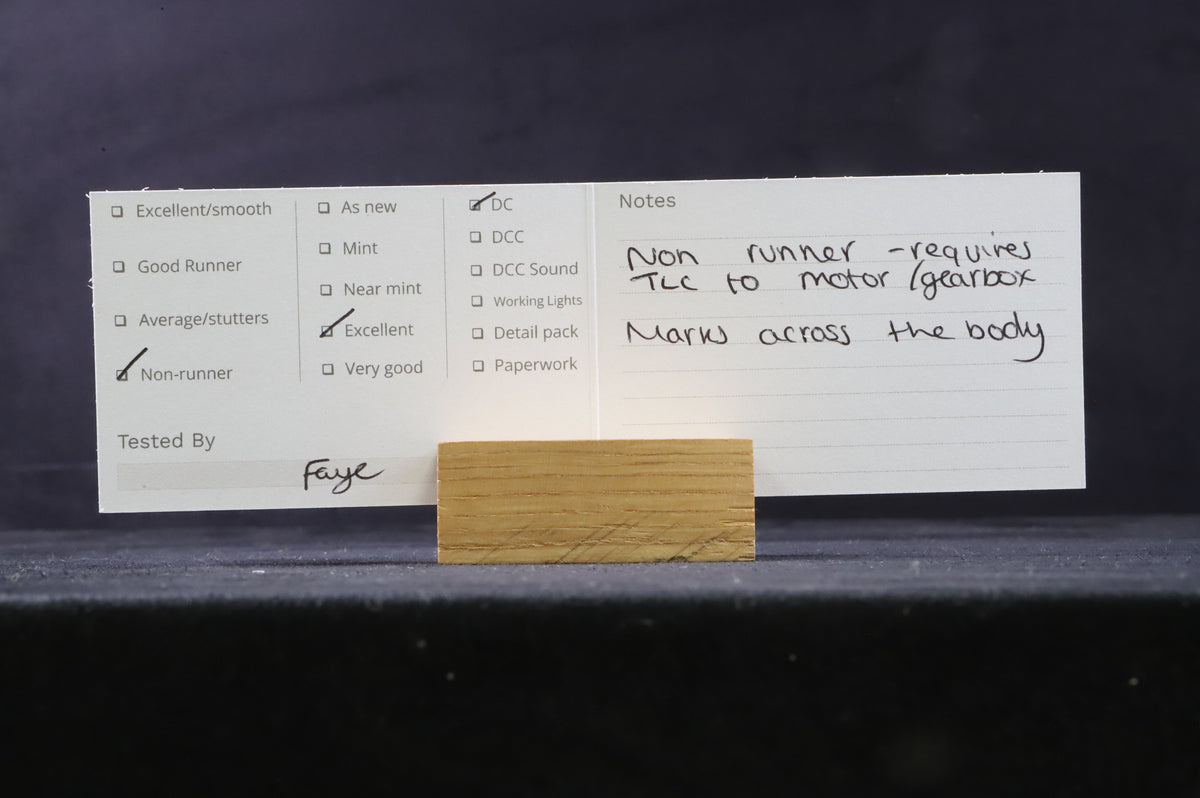 Excellent/smooth
Good Runner
Average/stutters
Non-runner
As new
Mint
Near mint
Excellent
Very good
DC
DCC
DCC Sound
Working Lights
Detail pack
Paperwork
Tested By
Faye
Notes
Non runner - requires
TLC to motor /gearbox
Marks across the body